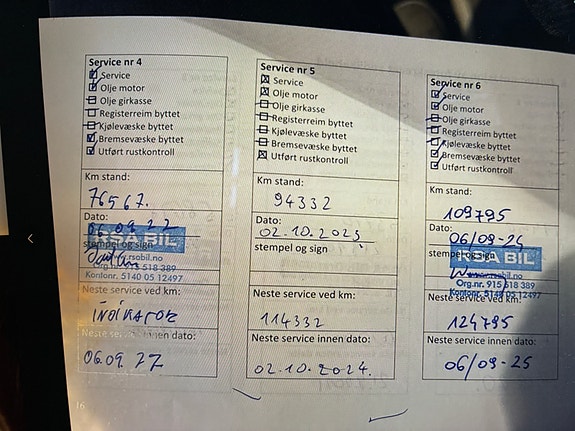 Service nr 4
Service
Olje motor
Olje girkasse
Registerreim byttet
Kjølevæske byttet
Bremsevæske byttet
Utført rustkontroll
Km stand:
76567.
Dato:
06.09.22
BIL
stempel og sign
rsabil.no
518 389
Kontonr. 5140 05 12497
Neste service ved km:
INDIKATOR
Neste service innen dato:
06.09.
Service nr 5
Service
Olje motor
Olje girkasse
Registerreim byttet
Kjølevæske byttet
Bremsevæske byttet
Utført rustkontroll
Km stand:
94332
Dato:
02.10.2023
stempel og sign
Neste service ved km:
114332
Neste service innen dato:
02.10.2024.
Service nr 6
Service
Olje motor
Olje girkasse
Registerreim byttet
Kjølevæske byttet
Bremsevæske byttet
Utført rustkontroll
Km stand:
109795
Dato:
06/09-24
BIL
stempel og sign
Org.nr. 915 518 389
Kontonr. 5140 05 12497
Neste service ved km:
124795
Neste service innen dato:
06/09-25
16